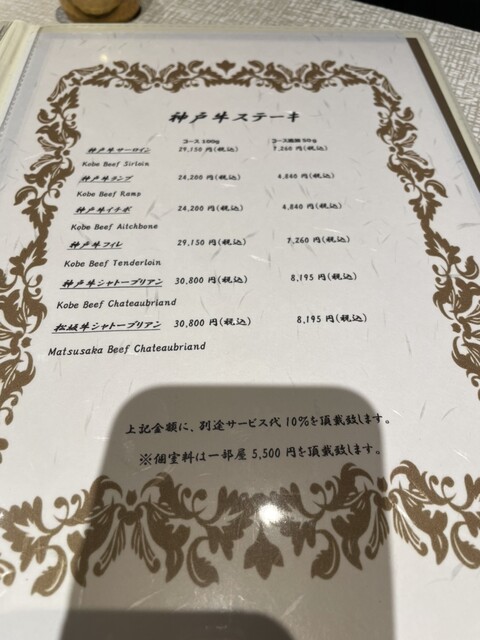 神戸牛ステーキ
コース 100g コース追加 50g
神戸牛サーロイン 29,150 円(税込) 7,260 円(税込)
Kobe Beef Sirloin
神戸牛ランプ 24,200 円(税込) 4,840 円(税込)
Kobe Beef Ramp
神戸牛イチボ 24,200 円(税込) 4,840 円(税込)
Kobe Beef Aitchbone
神戸牛フィレ 29,150 円(税込) 7,260 円(税込)
Kobe Beef Tenderloin
神戸牛シャトーブリアン 30,800 円(税込) 8,195 円(税込)
Kobe Beef Chateaubriand
松坂牛シャトーブリアン 30,800 円(税込) 8,195 円(税込)
Matsusaka Beef Chateaubriand
上記金額に、別途サービス代 10%を頂戴致します。
※個室料は一部屋 5,500 円を頂戴致します。